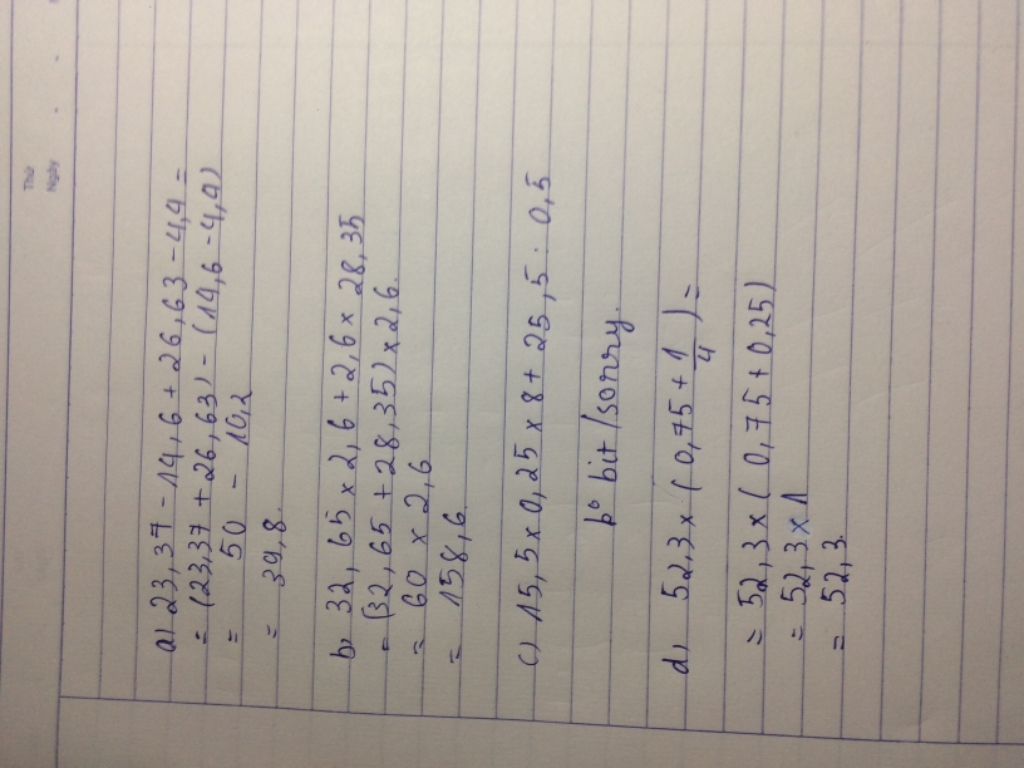 Thứ
Ngày
a) 23,37 - 14,6 + 26,63 - 4,4 =
= (23,37 + 26,63) - (14,6 - 4,4)
= 50 - 10,2
= 39,8.
b) 32,65 x 2,6 + 2,6 x 28,35
= (32,65 + 28,35) x 2,6.
= 60 x 2,6
= 158,6.
c) 15,5 x 0,25 x 8 + 25,5 : 0,5
bº bit / sorry.
d) 52,3 x ( 0,75 + 1/4 ) =
= 52,3 x ( 0,75 + 0,25)
= 52,3 x 1
= 52,3.